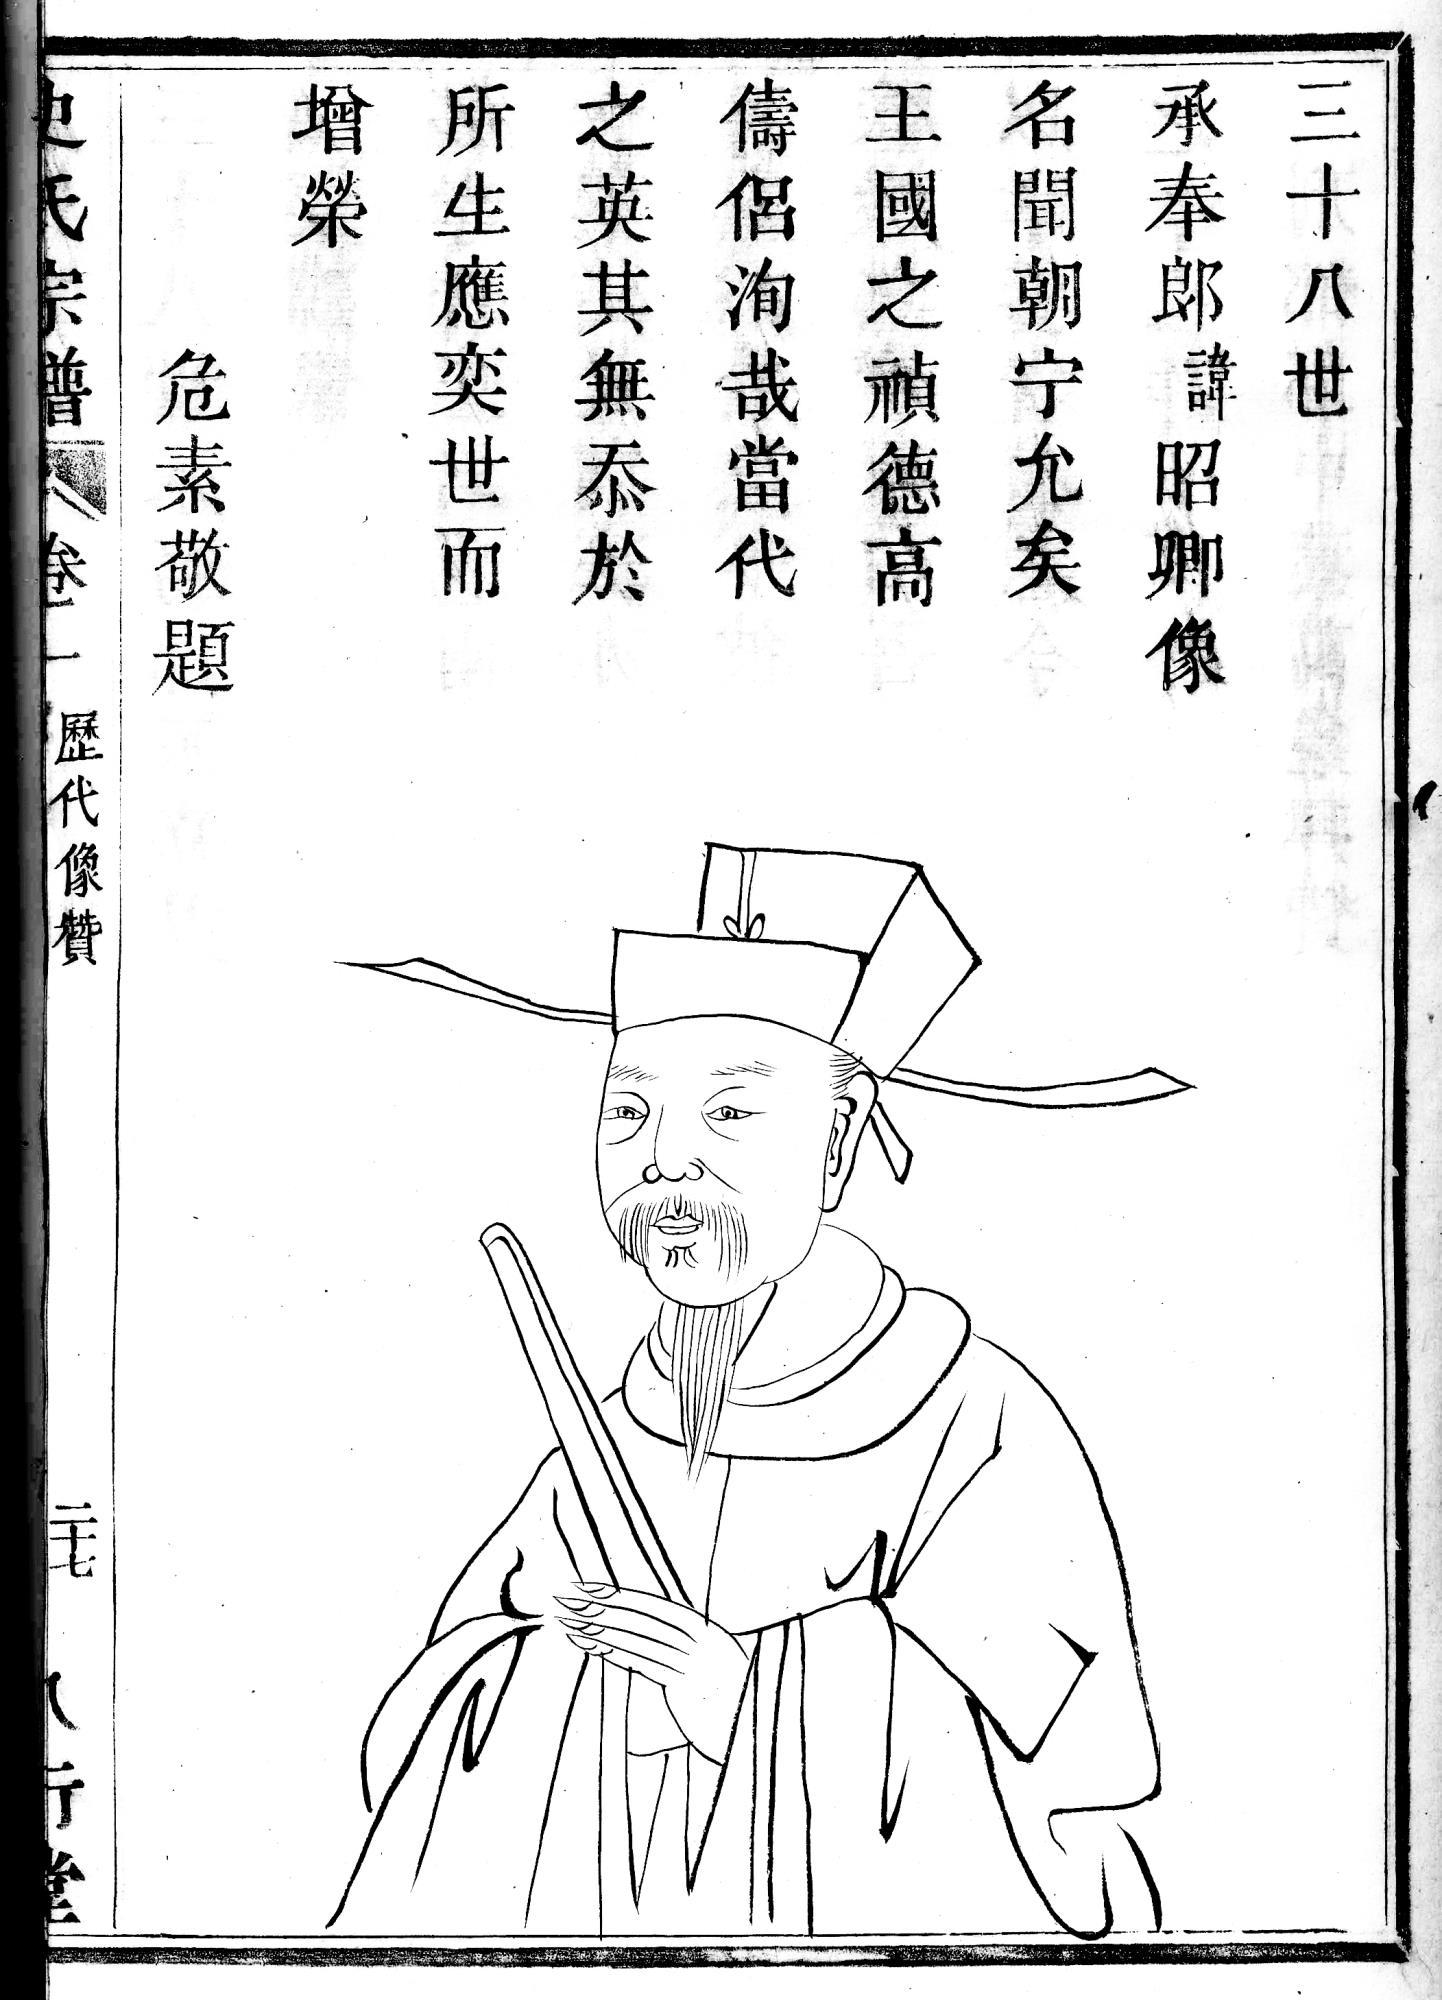 三十八世
承奉郎諱昭卿像
名聞朝宁允矣
王國之禎德高
儔侶洵哉當代
之英其無忝於
所生應奕世而
增榮
危素敬題
史氏宗譜
卷一
歷代像贊
二十七
八行堂